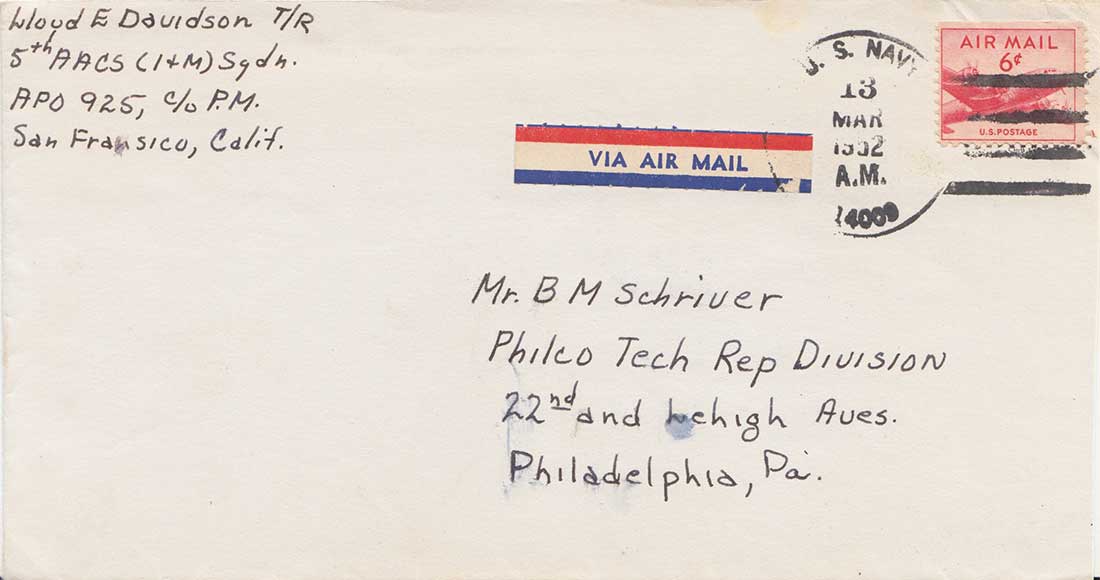 Lloyd E Davidson T/R
5th AACS (I+M) Sqdn.
APO 925, c/o P.M.
San Fransico, Calif.
VIA AIR MAIL
U. S. NAVY
13
MAR
1952
A.M.
14009
AIR MAIL
6¢
U.S. POSTAGE
Mr. B M Schriver
Philco Tech Rep Division
22nd and Lehigh Aves.
Philadelphia, Pa.